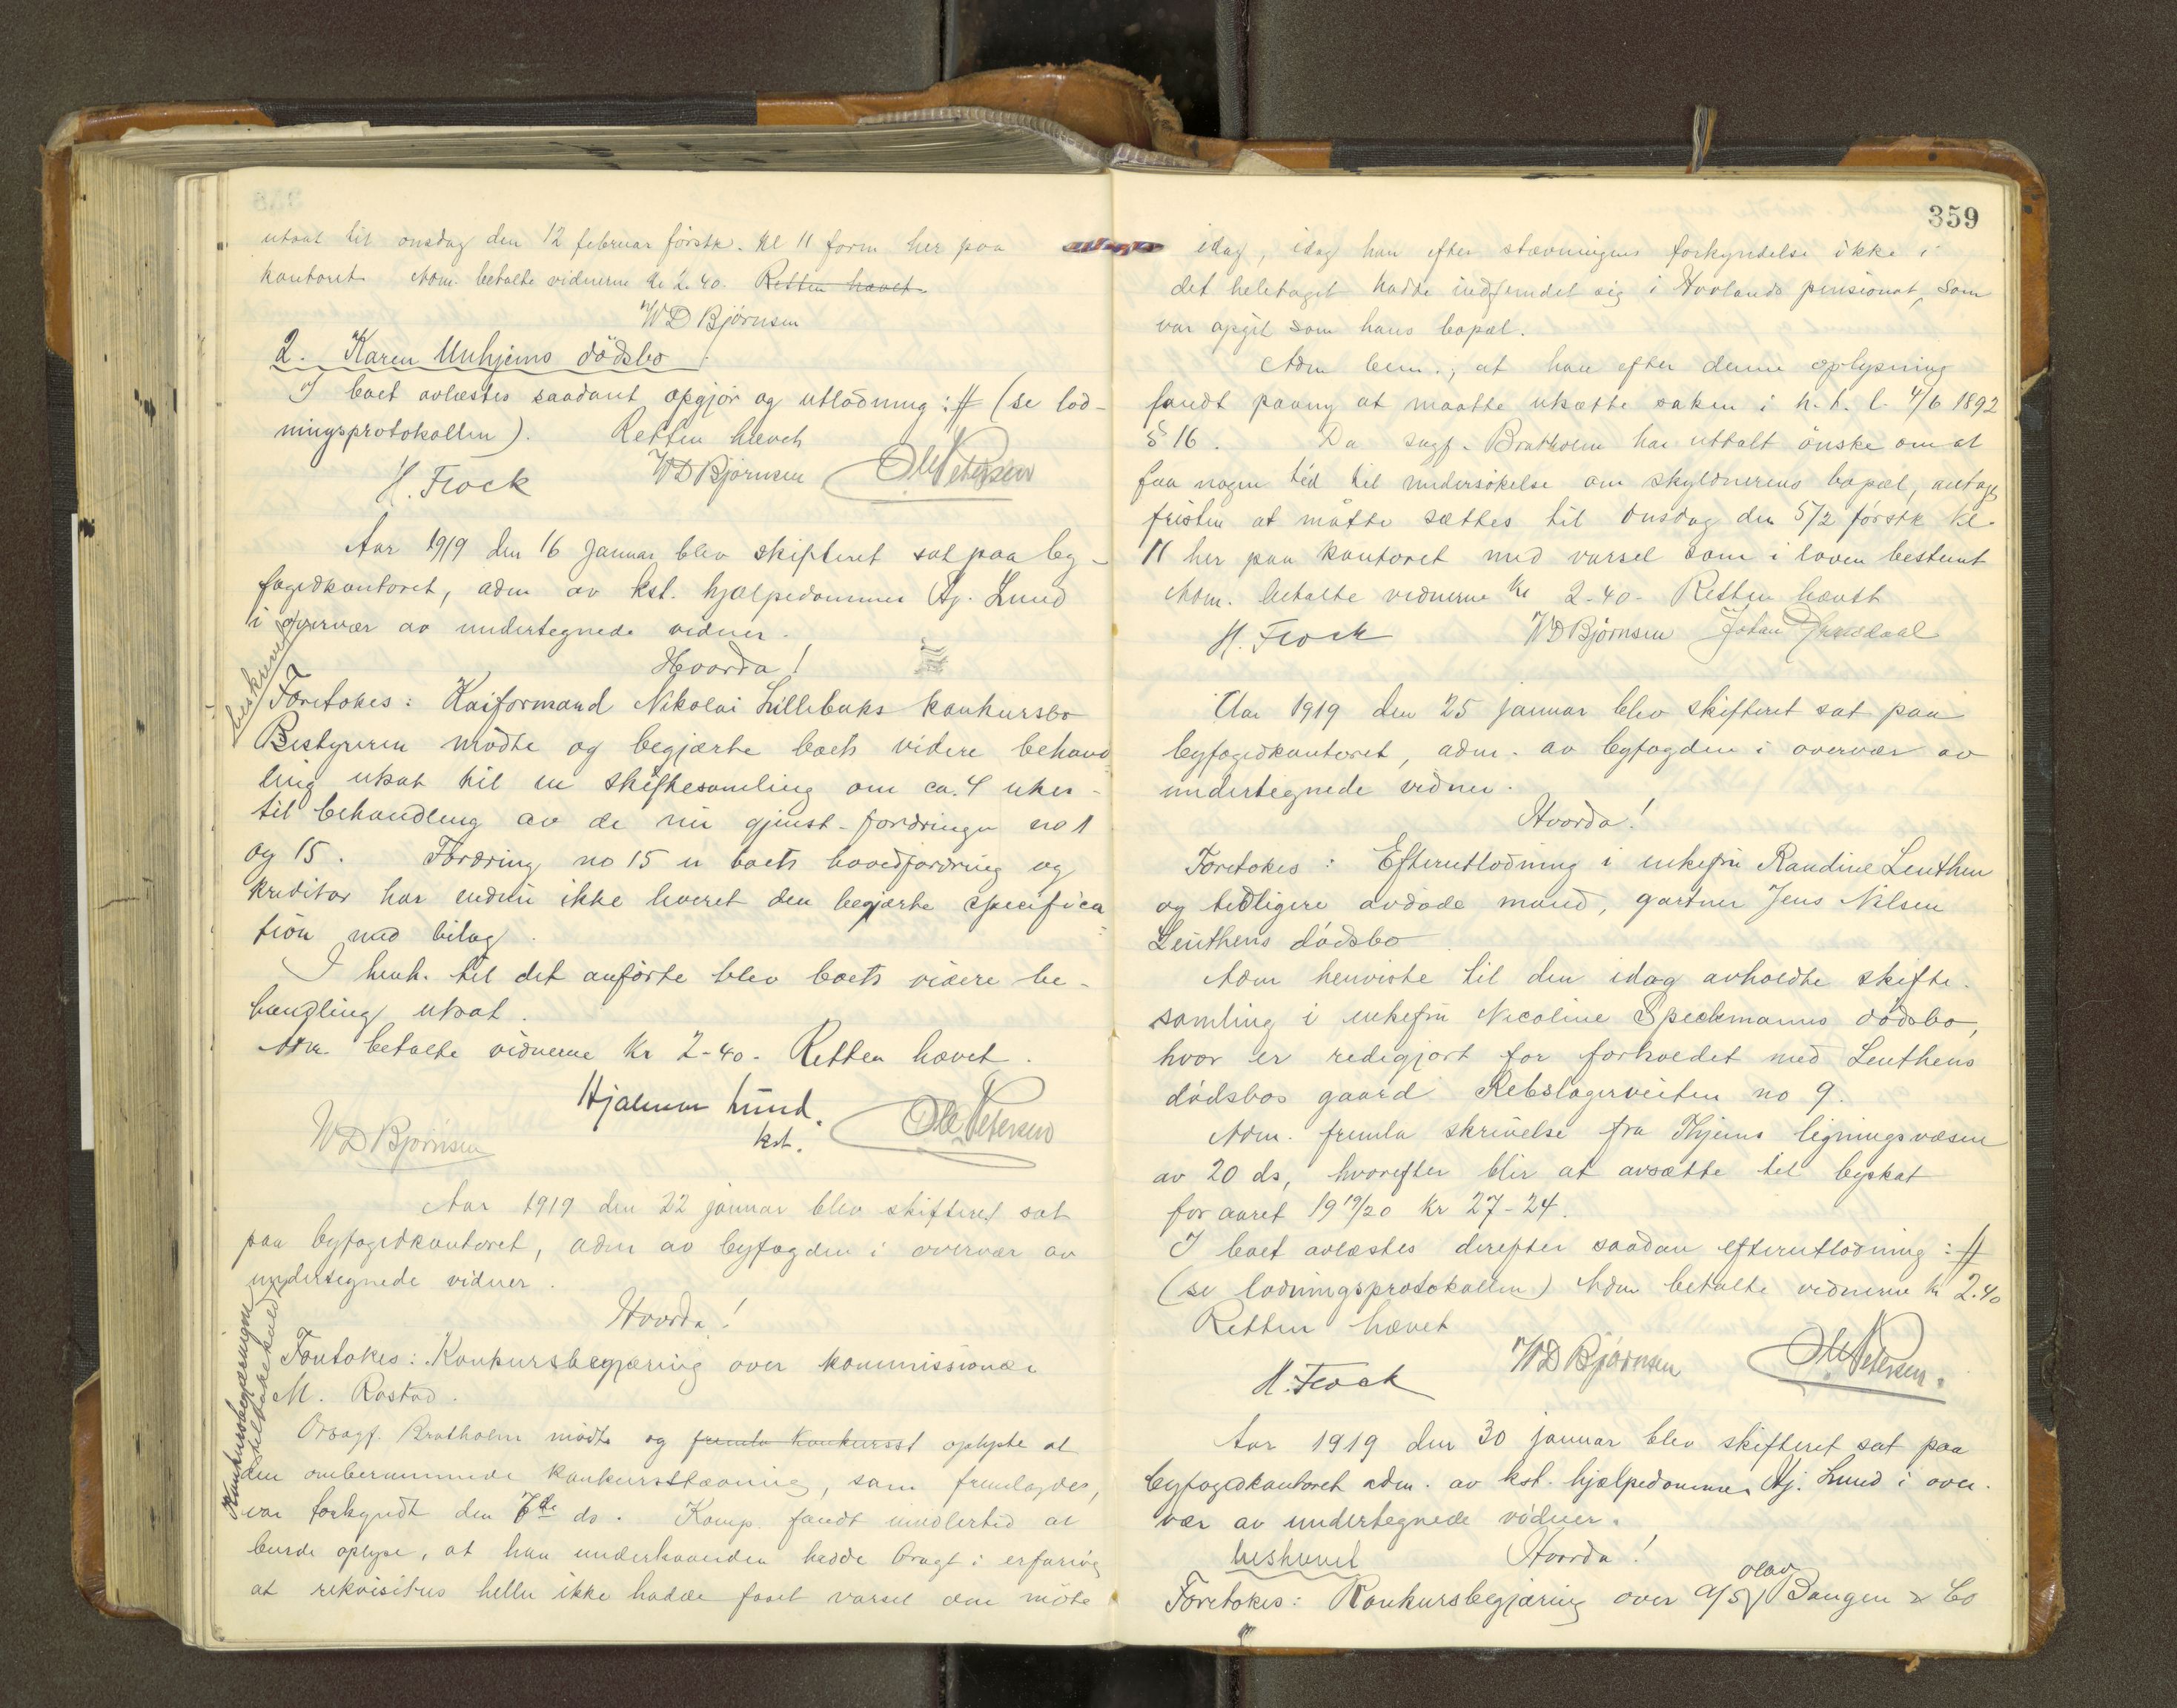 utsat til onsdag den 12 februar førstk. kl 11 form her paa
kontoret Adm. betalte vidnerne kr 2.40. Retten hævet
WD Bjørnsen
2. Karen Unhjems dødsbo
I boet avlæstes saadant opgjør og utlodning :# (se lod-
ningsprotokollen). Retten hævet
H. Flock WD Bjørnsen Ole Petersen
Aar 1919 den 16 Januar blev skifteret sat paa by-
fogedkontoret, adm av kst. hjælpedommer Hj. Lund
i overvær av undertegnede vidner.
Hvorda!
beskrevet
Foretokes: Kaiformand Nikolai Lillebuks konkursbo
Bestyreren mødte og begjærte boets videre behand
ling utsat til en skiftesamling om ca. 4 uker
til behandling av de nu gjenst. fordringer no 1
og 15. Fordring no 15 er boets hovedfordring og
kreditor har endnu ikke leveret den begjærte specifica
tion med bilag.
I henh. til det anførte blev boets videre be-
handling utsat.
Adm. betalte vidnerne Kr 2-40. Retten hævet.
Hjalmar Lund.
kst.
WD Bjørnsen Ole Petersen
Aar 1919 den 22 januar blev skifteret sat
paa byfogedkontoret, adm av byfogden i overvær av
undertegnede vidner.
Hvorda!
Konkursbegjæringen
tilbakekald
Foretokes: Konkursbegjæring over kommissionær
M. Rostad.
Orsagf. Bratholm mødte og fremla konkursst oplyste at
den ombernummede konkursstævning, som fremlagdes,
var forkyndt den 7de ds. Komp. fandt imidlertid at
burde oplyse, at han underhaanden hadde bragt i erfaring
at rekvisitus heller ikke hadde faaet varsel om møte
359
idag, idag han efter stævningens forkyndelse ikke i
det heletaget hadde indfundet sig i Hovlands pensionat, som
var opgit som hans bopæl.
Adm bem., at han efter denne oplysning
fandt paany at maatte utsætte saken i h. t. l. 4/6 1892
§ 16. Da sagf. Bratholm har uttalt ønske om at
faa nogen tid til undersøkelse om skyldnerens bopæl, antages
fristen at måtte sættes til Onsdag den 5/2 førstk kl.
11 her paa kontoret med varsel som i loven bestemt
Adm. betalte vidnerne kr 2-40- Retten hævet
H. Flock WD Bjørnsen Johan
Aar 1919 den 25 januar blev skifteret sat paa
byfogedkontoret, adm. av byfogden i overvær av
undertegnede vidner.
Hvorda!
Foretokes: Efterutlodning i enkefru Randine Leuthen
og tidligere avdøde mand, gartner Jens Nilsen
Leuthens dødsbo
Adm henviste til den idag avholdte skifte-
samling i enkefru Nicoline Speckmanns dødsbo,
hvor er redigjort for forholdet med Leuthens
dødsbos gaard Rebslagerveiten no 9.
Adm. fremla skrivelse fra Thjems ligningsvæsen
av 20 ds, hvorefter blir at avsætte til byskat
for aaret 1919/20 kr 27-24.
I boet avlæstes derefter saadan efterutlodning :#
(se lodningsprotokollen) Adm betalte vidnerne kr 2.40
Retten hævet
H. Flock WD Bjørnsen Ole Petersen.
Aar 1919 den 30 januar blev skifteret sat paa
byfogedkontoret adm. av kst. hjælpedommer Hj. Lund i over-
vær av undertegnede vidner.
beskrevet Hvorda!
Foretokes: Konkursbegjæring over A/S Olav Bangen & Co